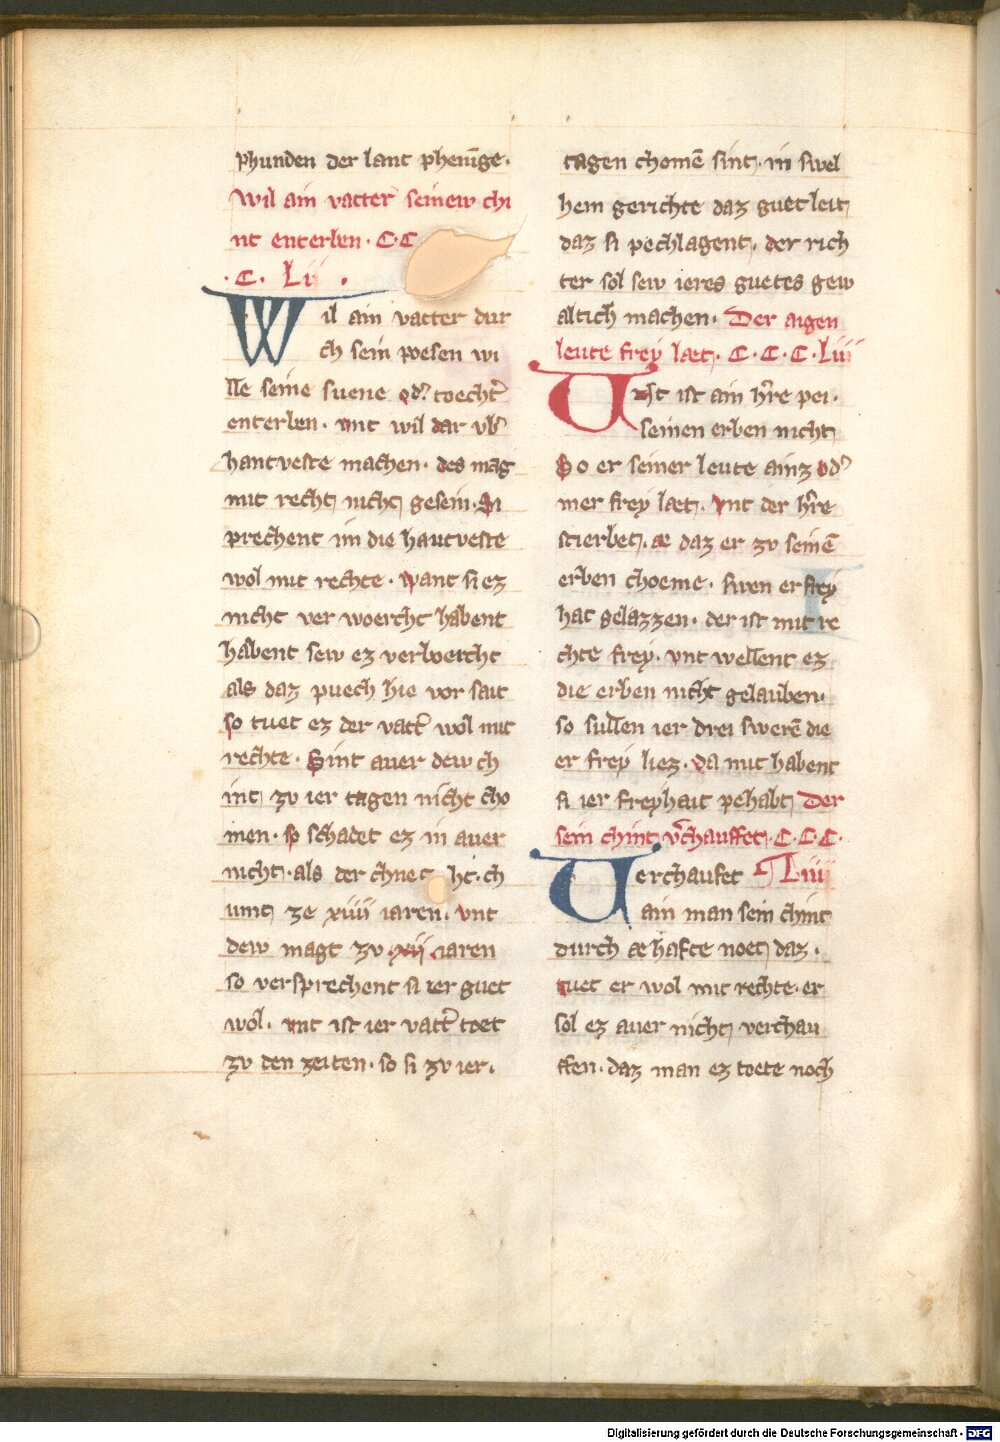 phunden der lant phenīge.
Wil ain vatter seinew chi
nt enterben. C. C
.C. Lii .
Wil ain vatter dur
ch sein poesen wi
lle seine suene od̾ toecht̾
enterben. vnt wil dar vb̾
hantveste machen. des mag
mit recht nicht gesein. Si
prechent im die hantveste
wol mit rechte. want si ez
nicht ver woercht habent
habent sew ez verboercht
als daz puech hie vor sait
so tuet ez der vatt̾ wol mit
rechte. Sint auer dew ch
int zv ier tagen nicht cho
men. so schadet ez in auer
nicht. als der chnec ht. ch
umt ze xiiii iaren. vnt
dew magt zv xii iaren
so versprechent si ier guet
wol. vnt ist ier vatt̾ toet
zv den zeiten. so si zv ier.
tagen chomē sint. in swel
hem gerichte daz guet leit
daz si pechlagent. der rich
ter sol sew ieres guetes gew
altich machen. Der aigen
leute frey læt. C. C. C. Liii
Vrst ist ain h̾re pei.
seinen erben nicht
So er seiner leute ainz od̾
mer frey læt. vnt der h̾re
stierbet. æ daz er zv seinē
erben choeme. swen er frey
hat gelazzen. der ist mit re
chte frey. vnt wellent ez
die erben nicht gelauben.
so sullen ier drei swerē die
er frey liez. da mit habent
si ier freyhait pehabt Der
sein chint v̾chauffet. C. C. C.
Verchaufet Liiii
ain man sein chint
durch æhafte noet daz.
tuet er wol mit rechte. er
sol ez auer nicht verchau
ffen. daz man ez toete noch
Digitalisierung gefördert durch die Deutsche Forschungsgemeinschaft - DFG